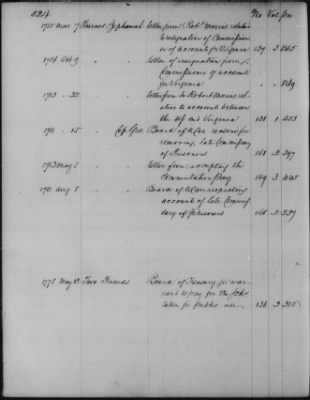 524. No Vol Pa
1785 Mar 7 Turner Zephaniah letter from Robt Morris relative
to resignation of Commissioner
of accounts for Virginia 137 3 865
1784 Feb 9 " letter of resignation from,
Commissioner of accounts
for Virginia " " 869
1783 " 22 " letter from to Robert Morris relative
to accounts between
the US and Virginia 138 1 423
" 15 Cap Geo Board of War reasons for
removing, late Commissary
of Prisoners 148 2 297
1783 May 1 " letter from accepting the
Commutation Pay 149 2 445
1781 Aug 8 " Board of War respecting
accounts of late Commissary
of prisoners 148 2 237
1778 May 15 Board of Treasury for warrant
to pay for the
taken for public use 136 2 255